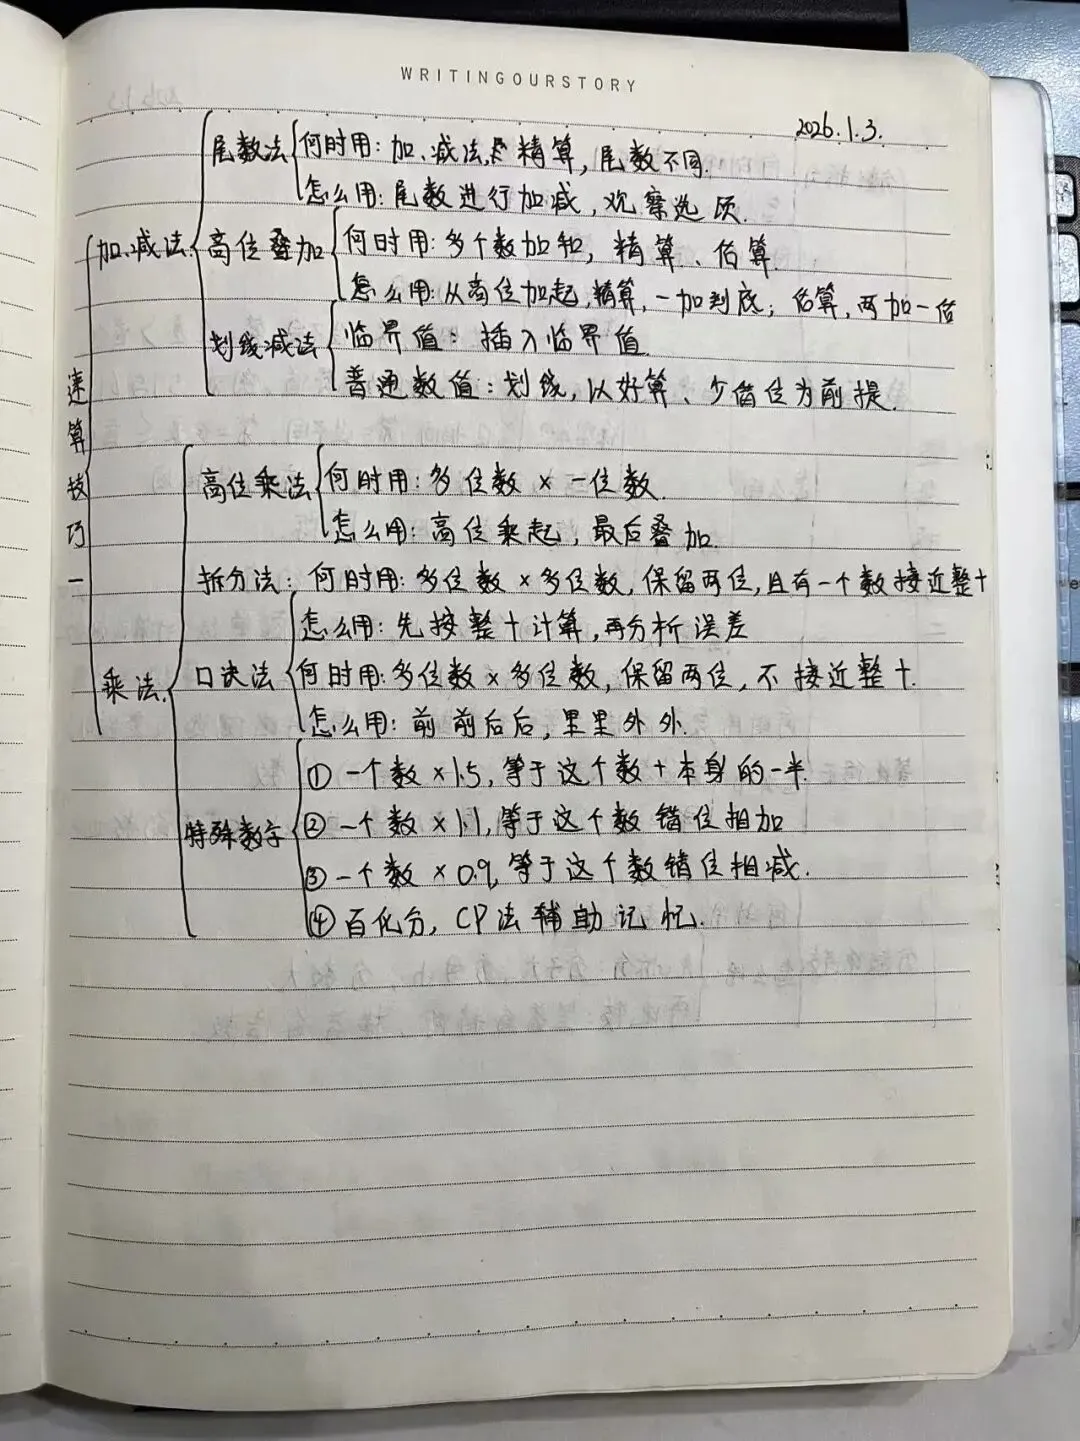 WRITINGOURSTORY
2026.1.3.
速算技巧一
加、减法.
尾数法
何时用:加、减法,精算,尾数不同.
怎么用:尾数进行加减,观察选项.
高位叠加
何时用:多个数加和,精算、估算.
怎么用:从高位加起,精算,一加到底;估算,两加一估
划线减法
临界值:插入临界值
普通数值:划线,以好算、少借位为前提.
乘法.
高位乘法
何时用:多位数×一位数.
怎么用:高位乘起,最后叠加.
拆分法:何时用:多位数×多位数,保留两位,且有一个数接近整十
怎么用:先按整十计算,再分析误差
口诀法
何时用:多位数×多位数,保留两位,不接近整十.
怎么用:前前后后,里里外外.
特殊数字
①一个数×1.5,等于这个数+本身的一半.
②一个数×1.1,等于这个数错位相加
③一个数×0.9,等于这个数错位相减.
④百化分,CP法辅助记忆.